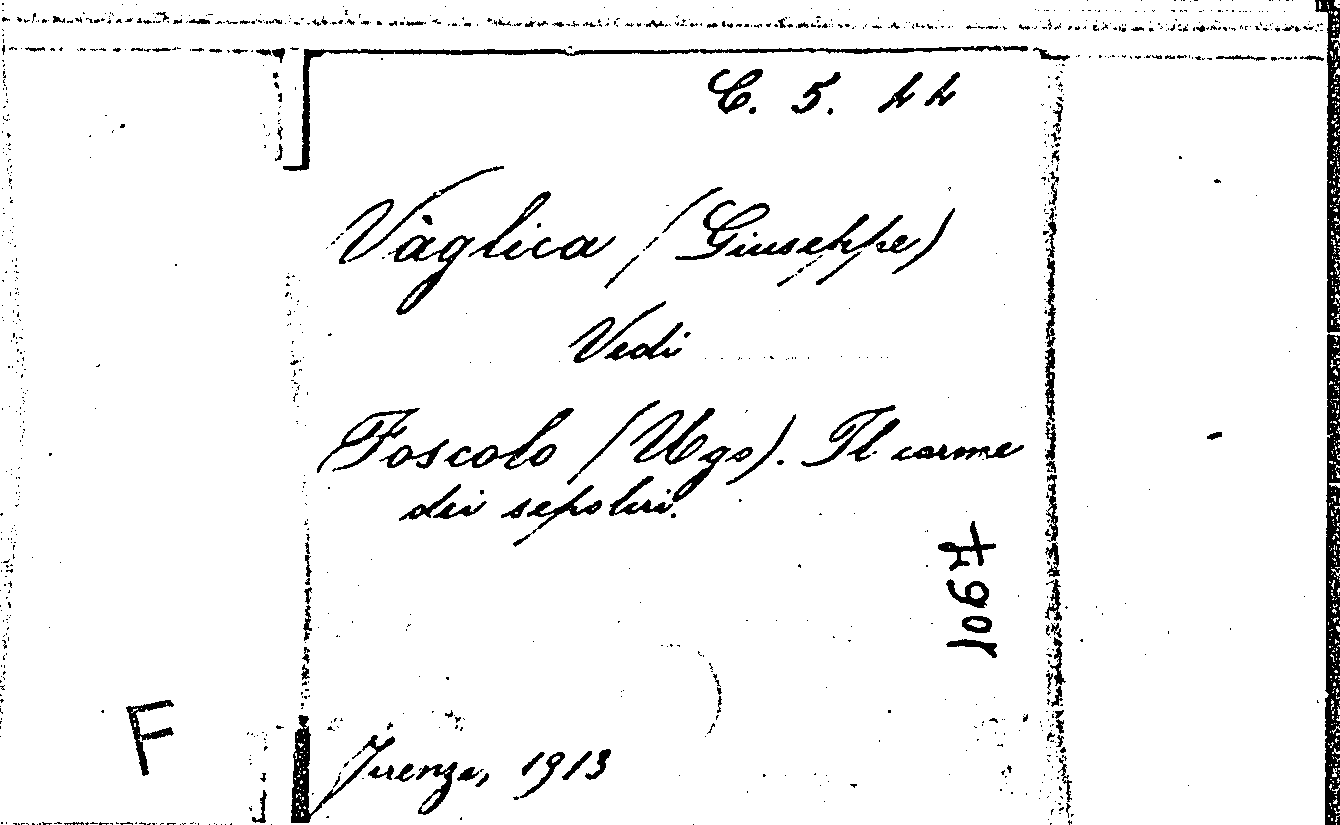 C. 5. 44
Vàglica (Giuseppe)
Vedi
Foscolo (Ugo). Il carme
dei sepolcri.
1067
F
Firenze, 1913